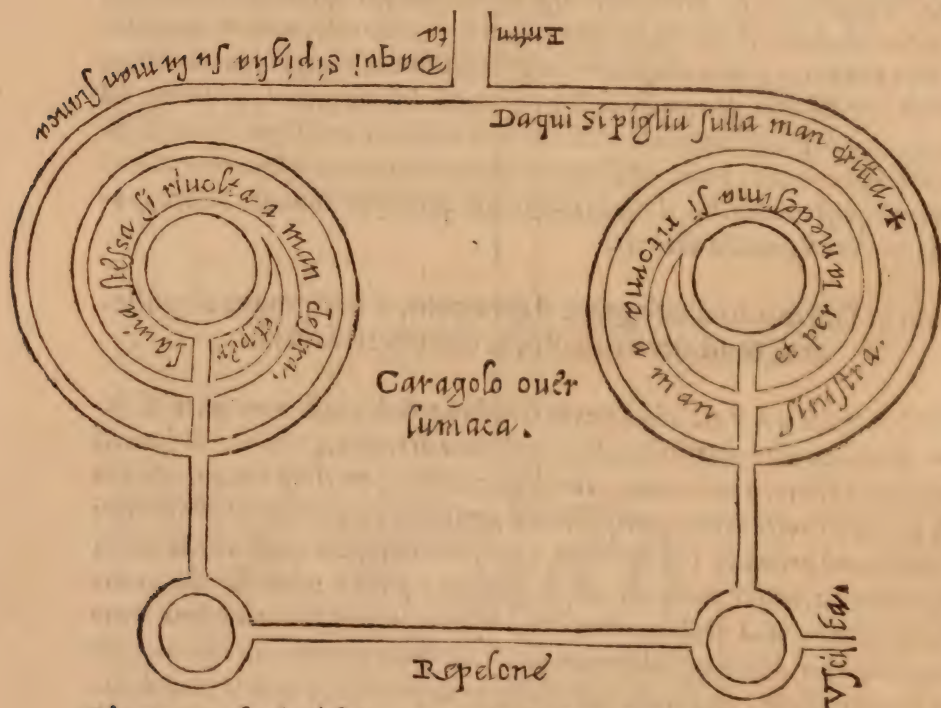 Entra
ta
Da qui si piglia su la man stanca
Daqui Si pigliu sulla man dritta. ✠
La ina stessa si riuolta a man destra,
et per
et per la medesima si ritorna a man sinistra.
Caragolo ouer
lumaca.
Repelone
Vscit Ea.